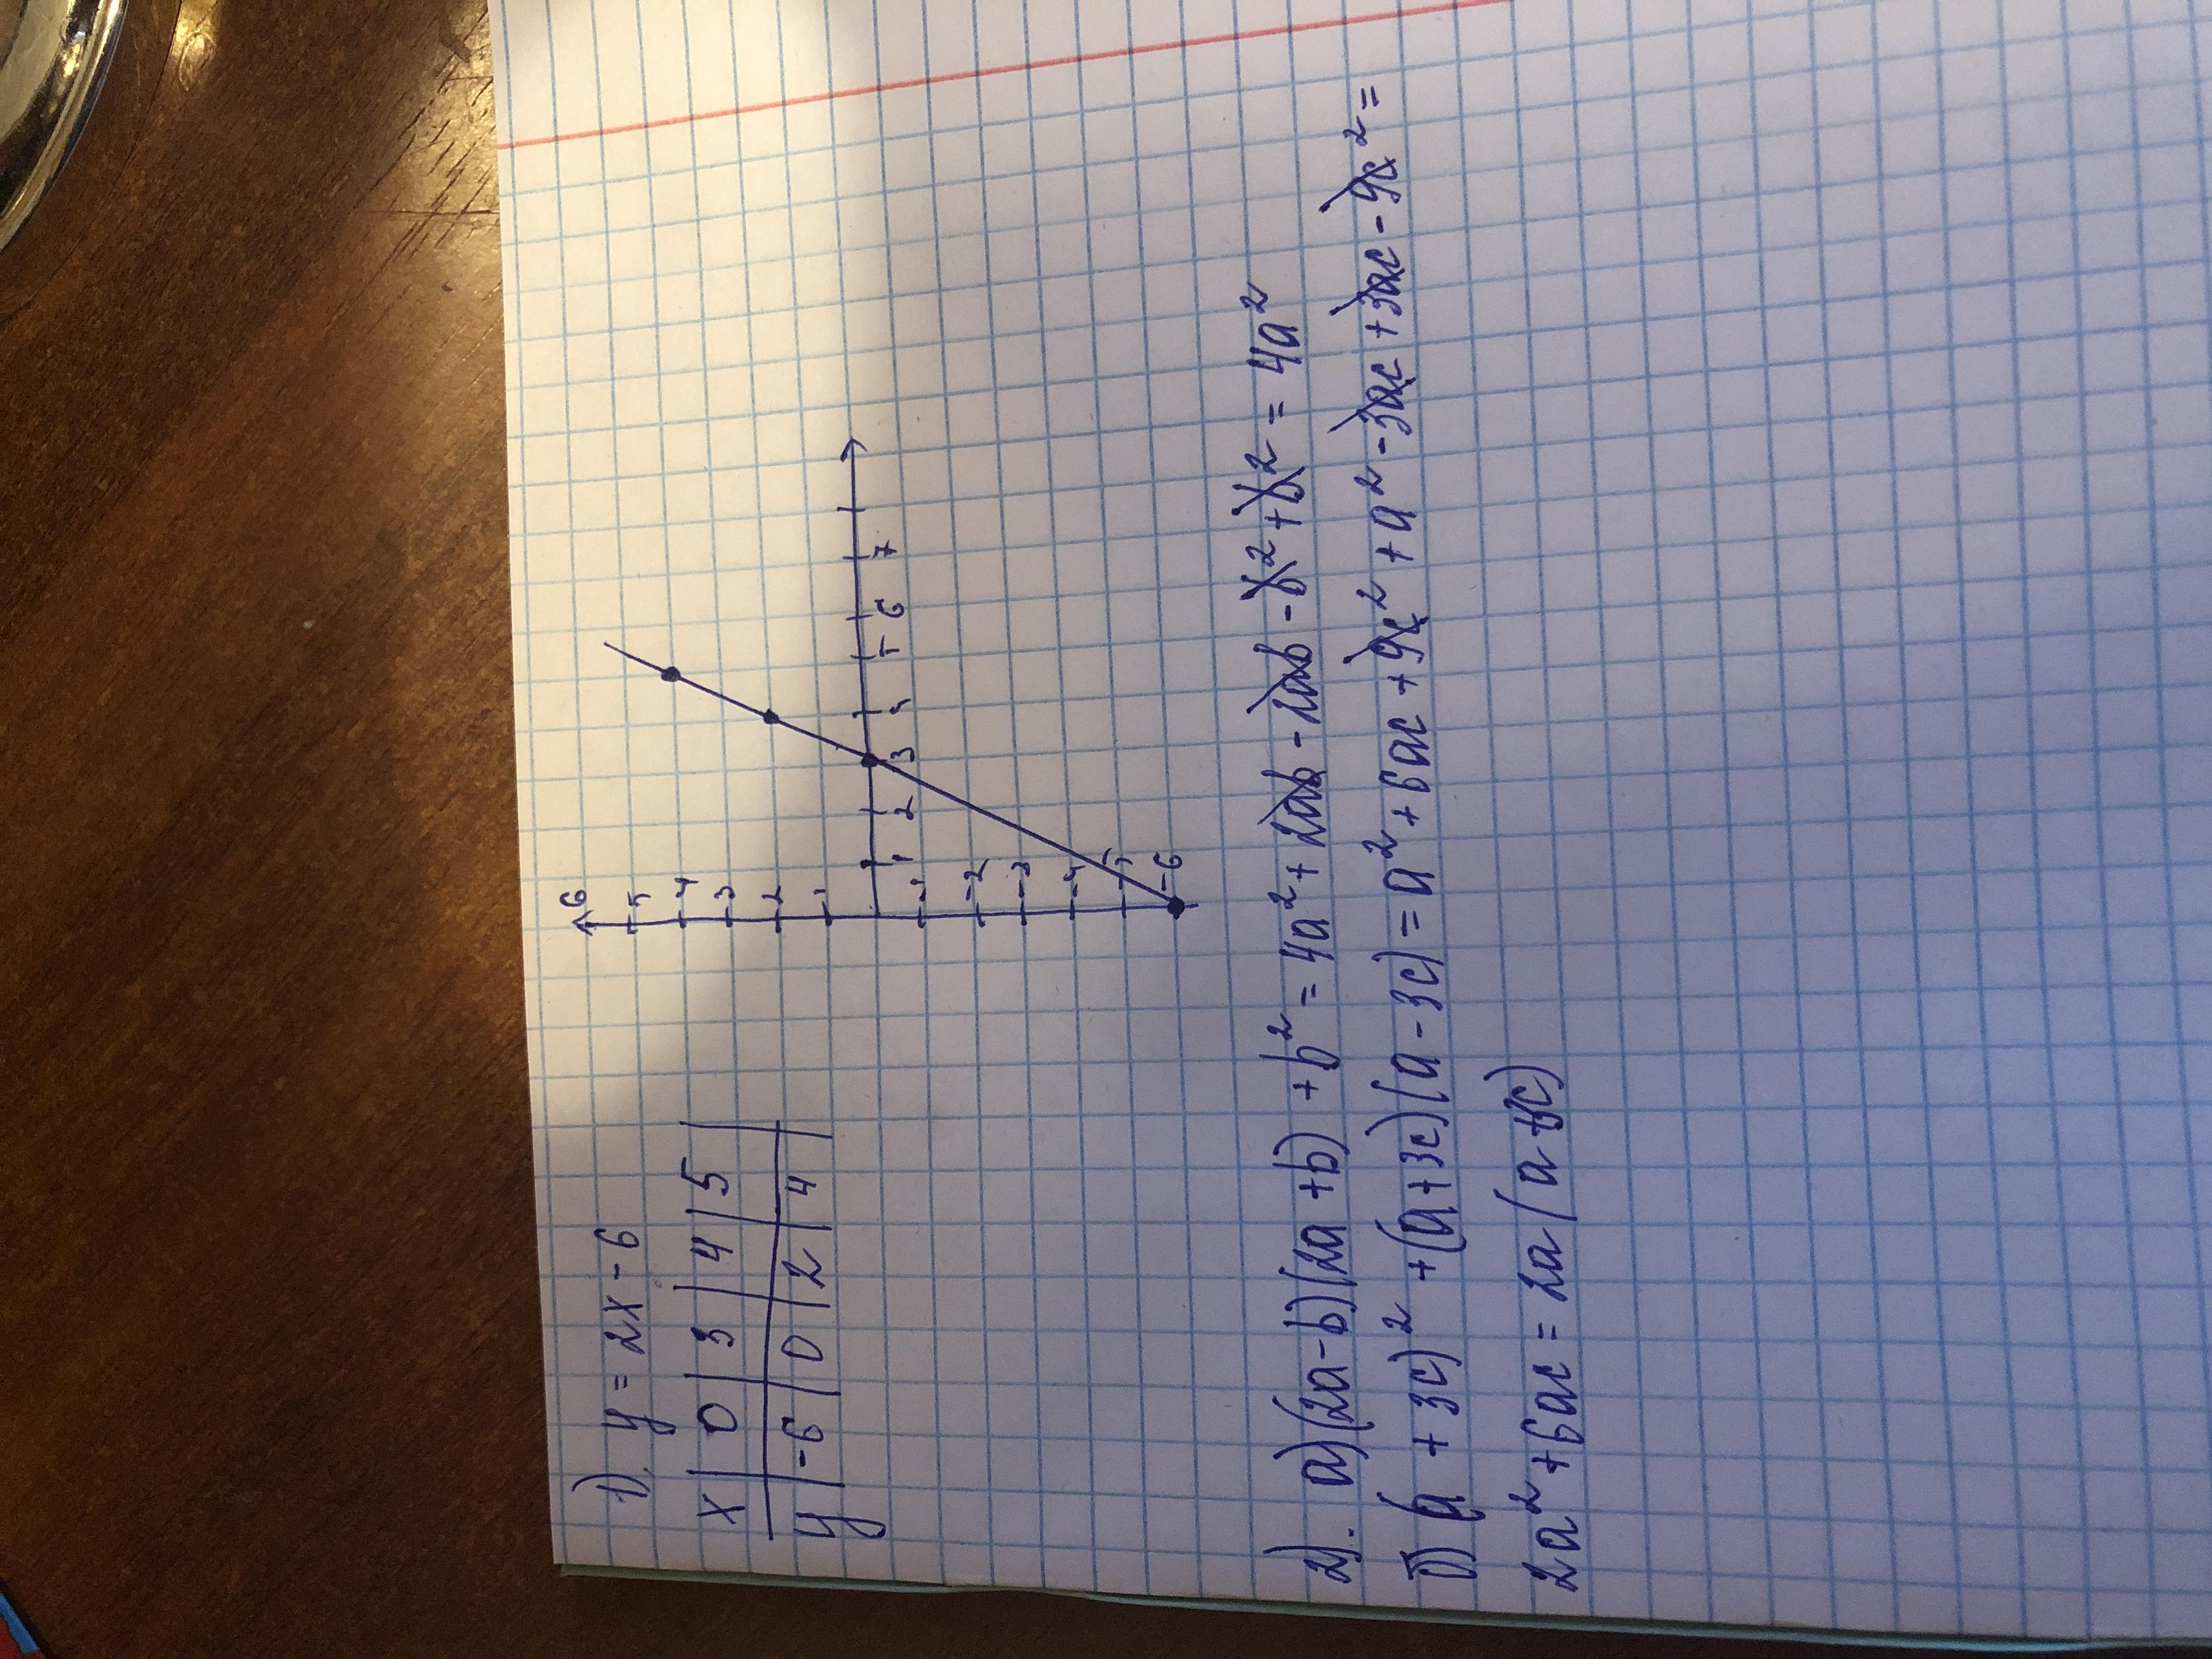 1). y = 2x - 6
x | 0 | 3 | 4 | 5 |
y | -6 | 0 | 2 | 4 |
6
5
4
3
2
1
1 2 3 4 5 6 7
-1
-2
-3
-4
-5
-6
2). а) (2a-b)(2a+b) + b² = 4a² + 2ab - 2ab - b² + b² = 4a²
б) (a + 3c)² + (a+3c)(a - 3c) = a² + 6ac + 9c² + a² - 3ac + 3ac - 9c² =
2a² + 6ac = 2a (a +3c)